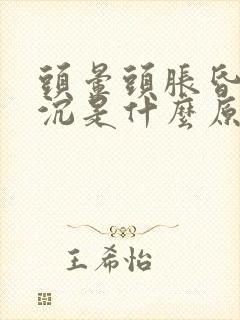 頭暈頭脹昏
沉是什麼原
王希怡